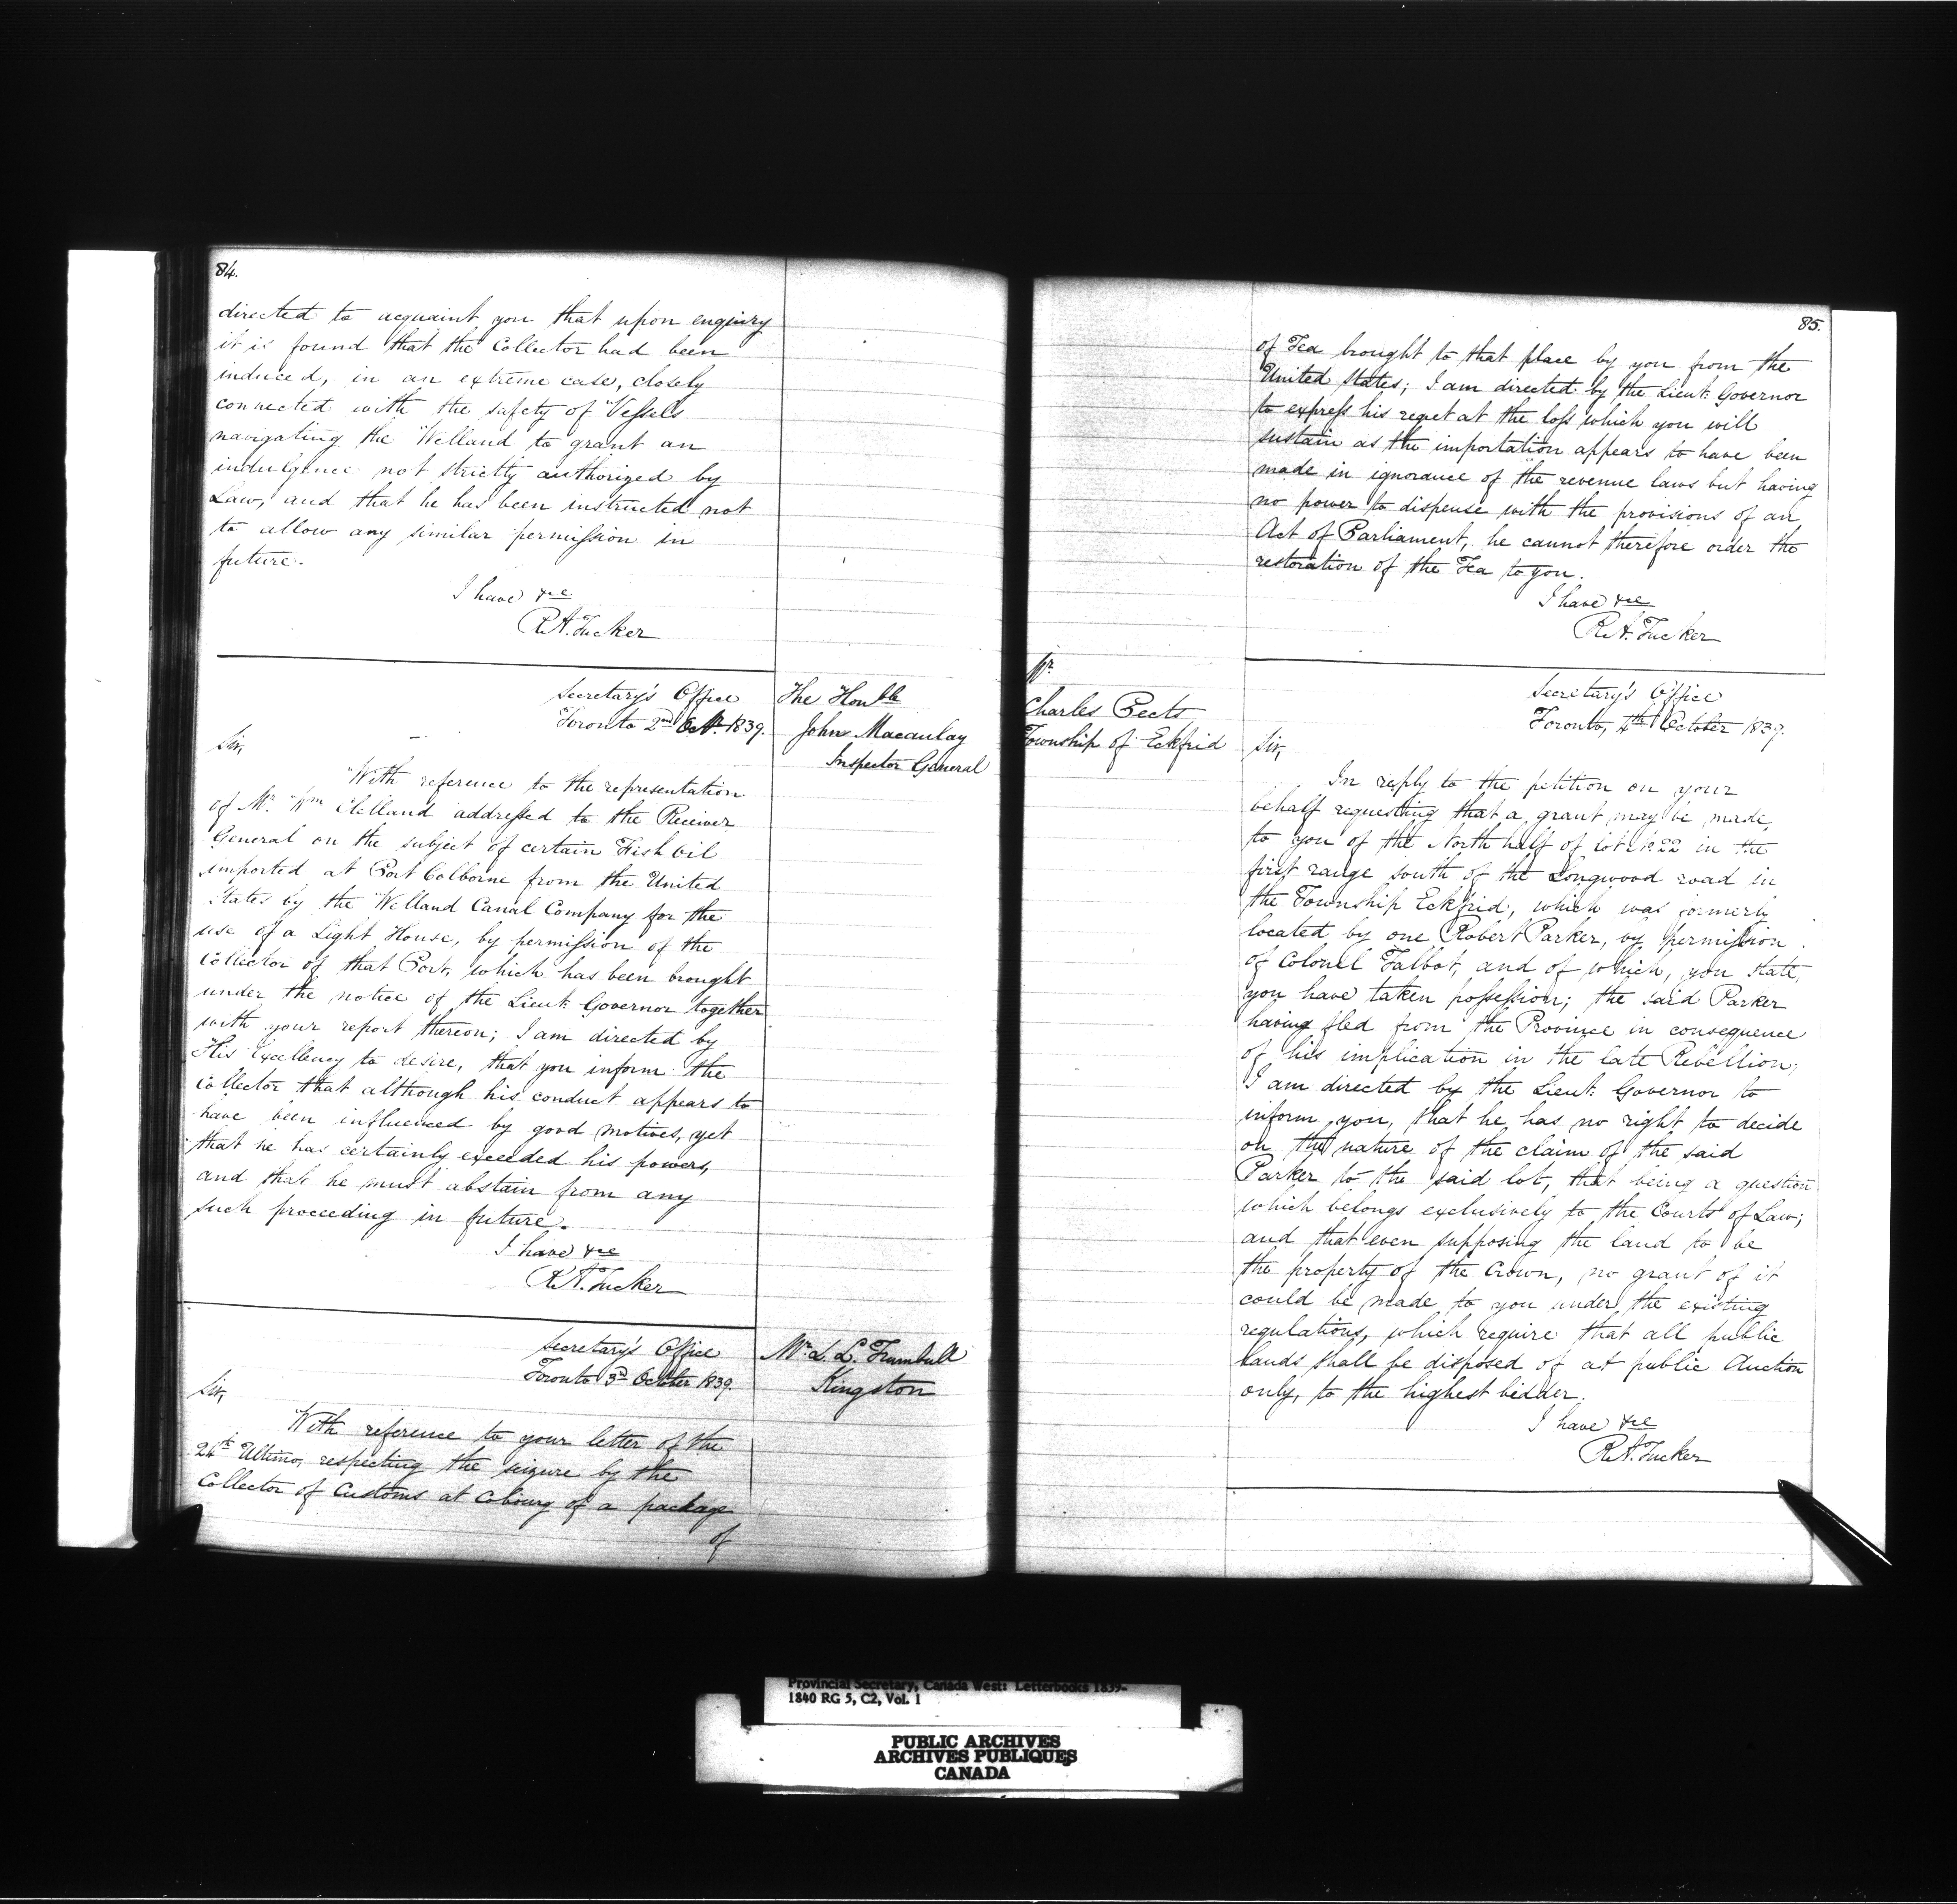 84.
directed to acquaint you that upon enquiry
it is found that the Collector had been
induced, in an extreme case, closely
connected with the safety of Vessels
navigating the Welland to grant an
indulgence not strictly authorized by
Law, and that he has been instructed not
to allow any similar permission in
future.
I have &ce
R.A. Tucker
The Honble
John Macaulay
Inspector General
Secretary's Office
Toronto 2nd Octr. 1839.
Sir,
With reference to the representation
of Mr. Wm Clelland addressed to the Receiver
General on the subject of certain Fish Oil
imported at Port Colborne from the United
States by the Welland Canal Company for the
use of a Light House, by permission of the
Collector of that Port, which has been brought
under the notice of the Lieut. Governor together
with your report thereon; I am directed by
His Excellency to desire, that you inform the
Collector that although his conduct appears to
have been influenced by good motives, yet
that he has certainly exceeded his powers,
and that he must abstain from any
such proceeding in future.
I have &ce
R.A. Tucker
Mr. L. L. Trumbull
Kingston
Secretary's Office
Toronto 3d October 1839.
Sir,
With reference to your letter of the
24th Ultimo, respecting the seizure by the
Collector of Customs at Cobourg of a package
of
85.
of Tea brought to that place by you from the
United States; I am directed by the Lieut. Governor
to express his regret at the loss which you will
sustain as the importation appears to have been
made in ignorance of the revenue laws but having
no power to dispense with the provisions of an
Act of Parliament, he cannot therefore order the
restoration of the Tea to you.
I have &ce
R.A. Tucker
Mr.
Charles Pects
Township of Eckfrid
Secretary's Office
Toronto, 4th October 1839.
Sir,
In reply to the petition on your
behalf requesting that a grant may be made
to you of the North half of lot No. 22 in the
first range south of the Longwood road in
the Township Eckfrid, which was formerly
located by one Robert Parker, by permission
of Colonel Talbot, and of which, you state,
you have taken possession; the said Parker
having fled from the Province in consequence
of his implication in the late Rebellion;
I am directed by the Lieut. Governor to
inform you, that he has no right to decide
on the nature of the claim of the said
Parker to the said lot, that being a question
which belongs exclusively to the Courts of Law;
and that even supposing the land to be
the property of the Crown, no grant of it
could be made to you under the existing
regulations, which require that all public
lands shall be disposed of at public Auction
only, to the highest bidder.
I have &ce
R.A. Tucker
Provincial Secretary, Canada West: Letterbooks 1839-
1840 RG 5, C2, Vol. 1
PUBLIC ARCHIVES
ARCHIVES PUBLIQUES
CANADA